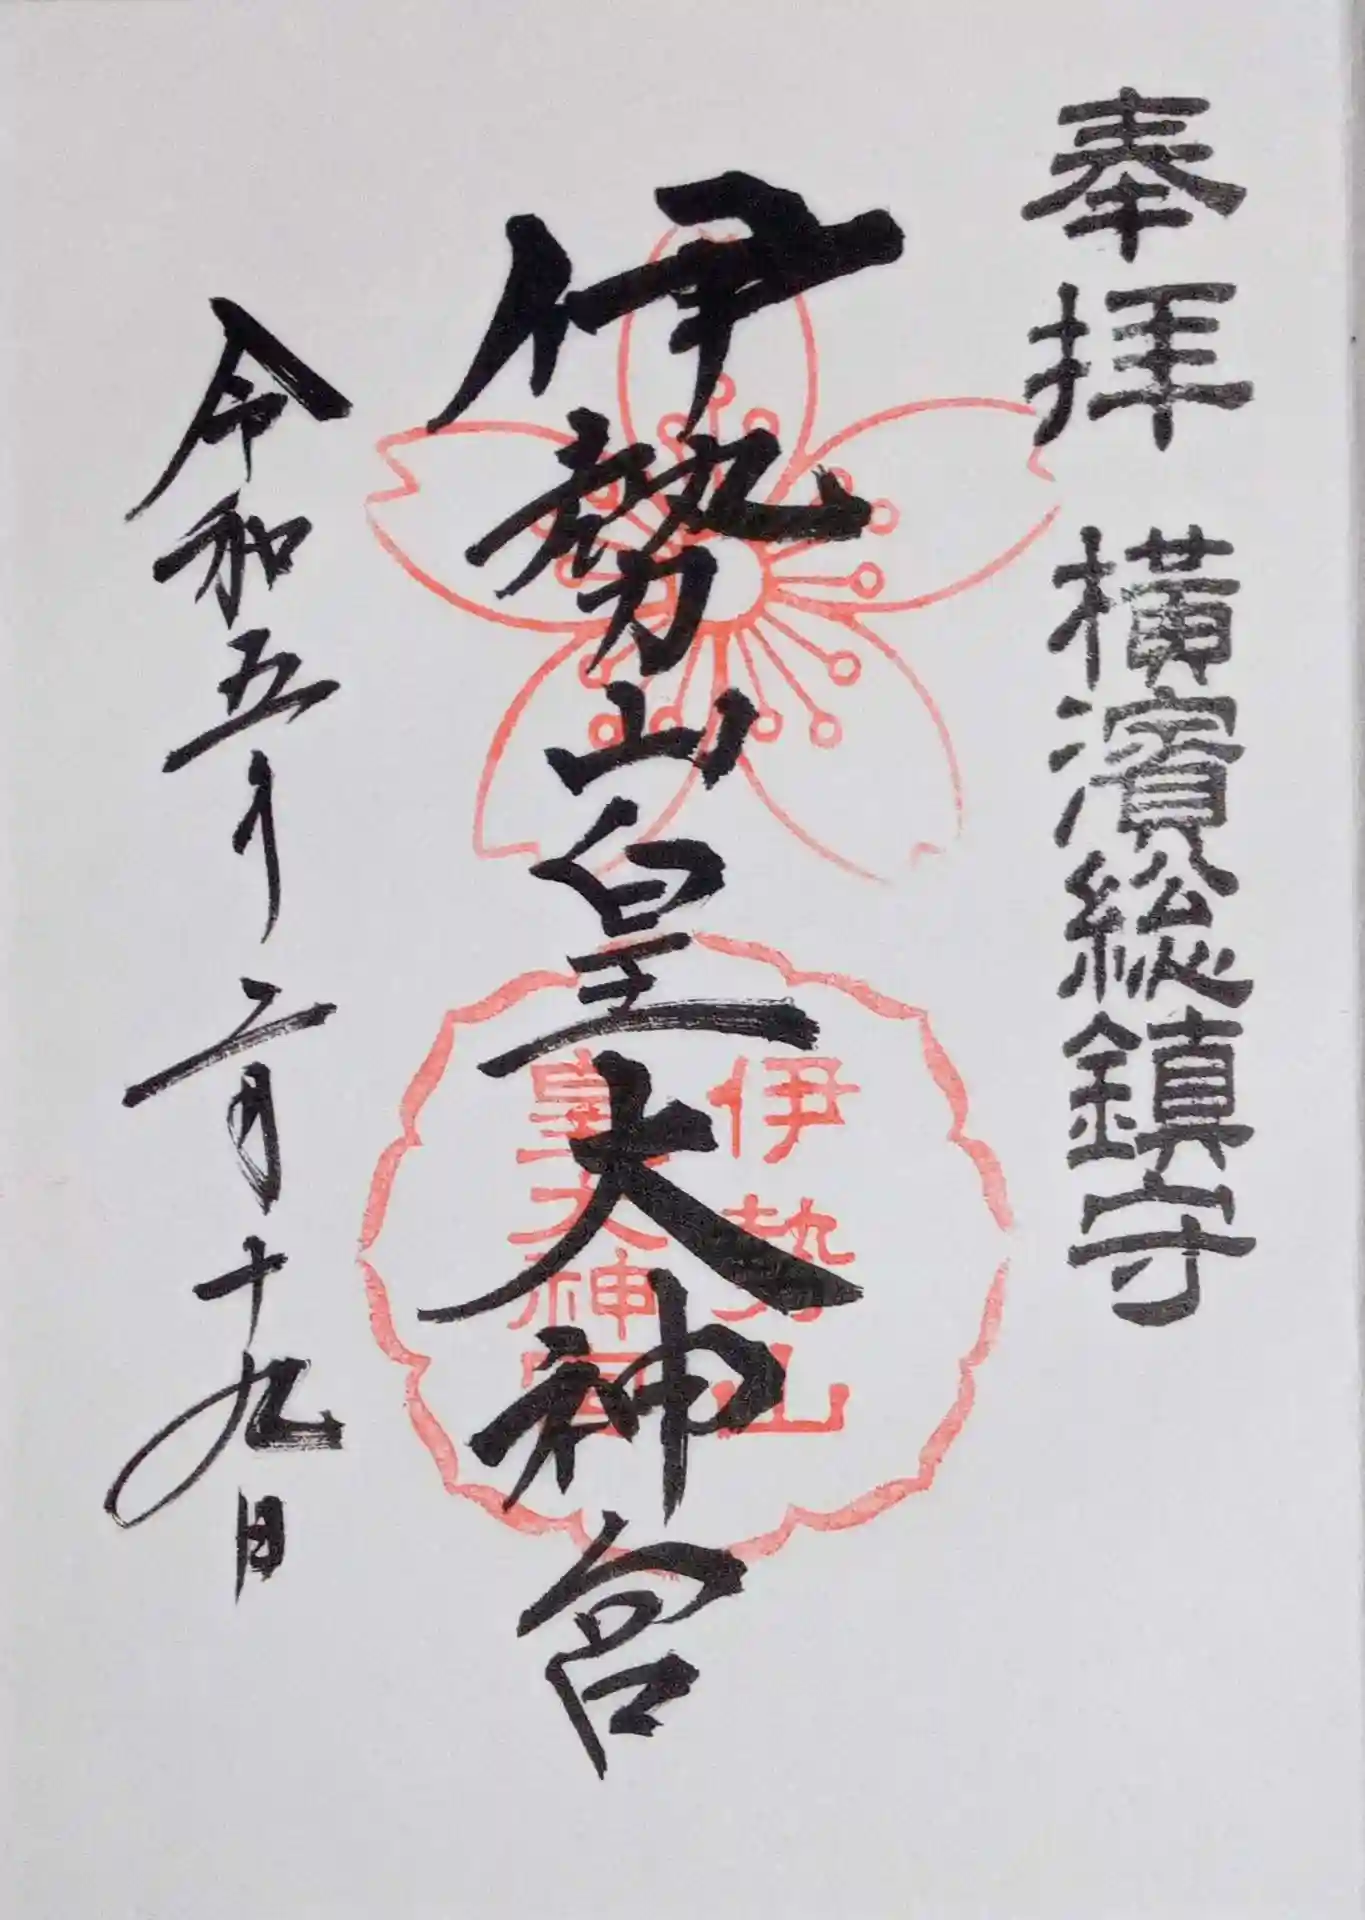 奉拝 横濱総鎮守
伊勢山皇大神宮
伊勢山
皇大神宮
令和五年二月十九日